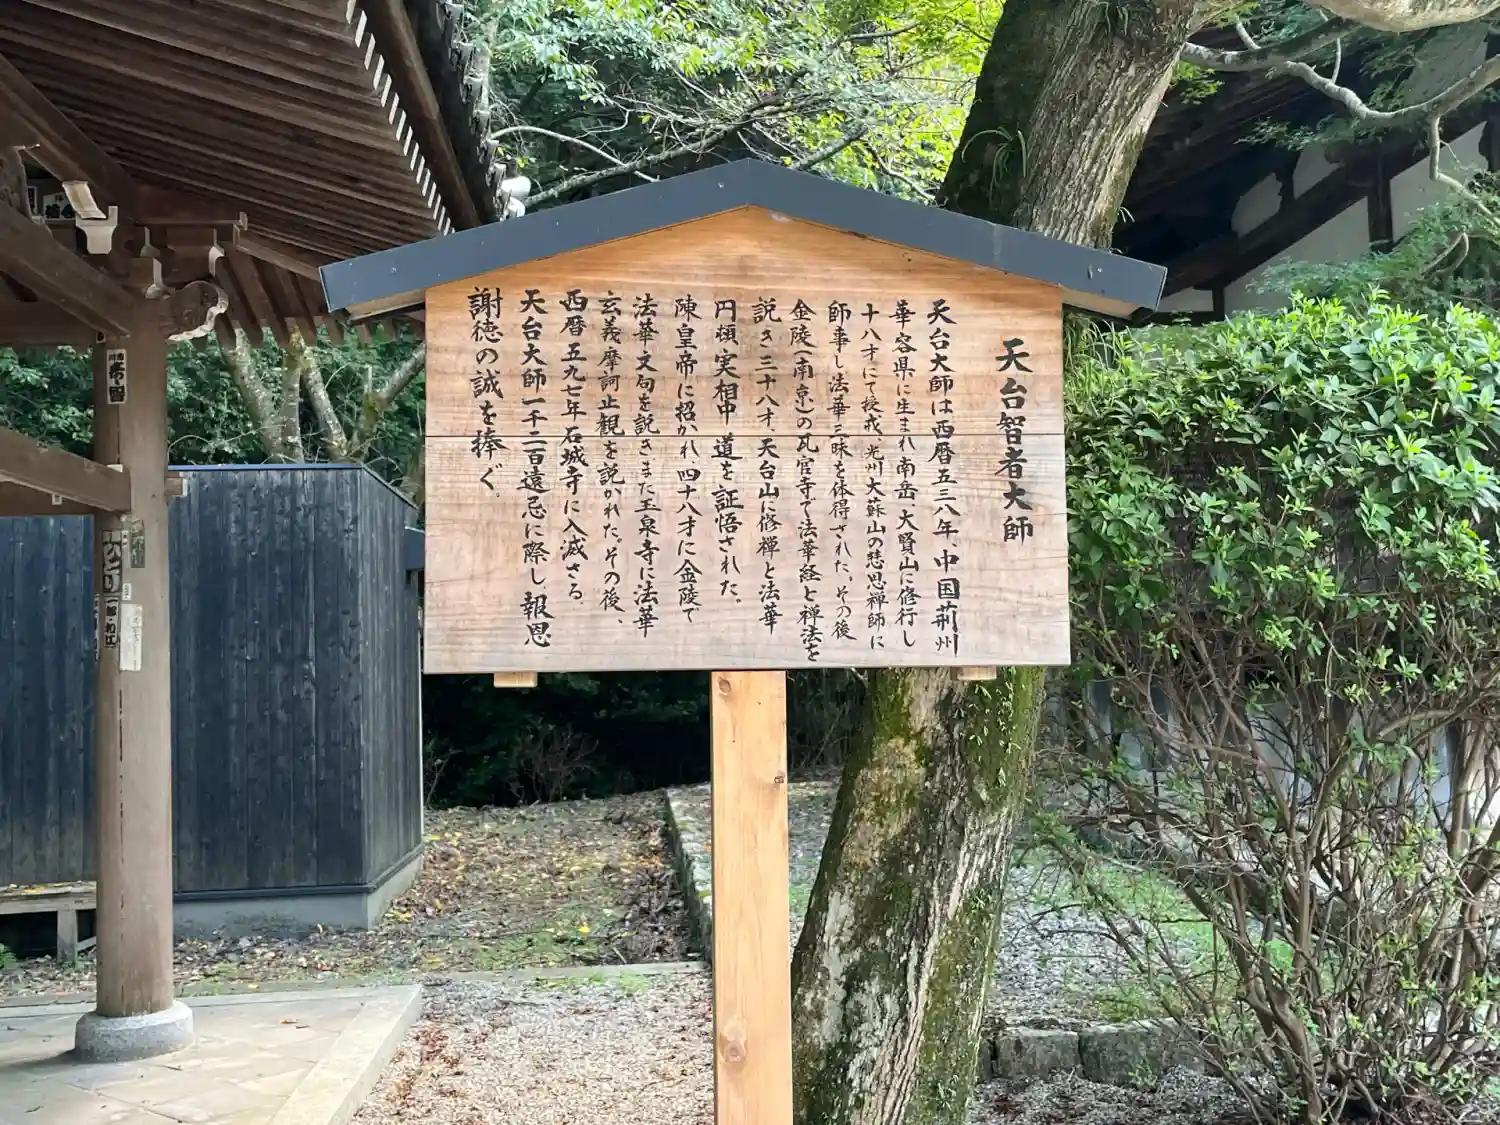 天台智者大師
天台大師は西暦五三八年、中国荊州
華容県に生まれ南岳、大賢山に修行し
十八才にて授戒、光州大蘇山の慧思禅師に
師事し法華三昧を体得された。その後
金陵(南京)の瓦官寺で法華経と禅法を
説き三十八才、天台山に修禅と法華
円頓実相中道を証悟された。
陳皇帝に招かれ四十八才に金陵で
法華文句を説きまた玉泉寺に法華
玄義摩訶止観を説かれた。その後、
西暦五九七年石城寺に入滅さる。
天台大師一千二百遠忌に際し報恩
謝徳の誠を捧ぐ。